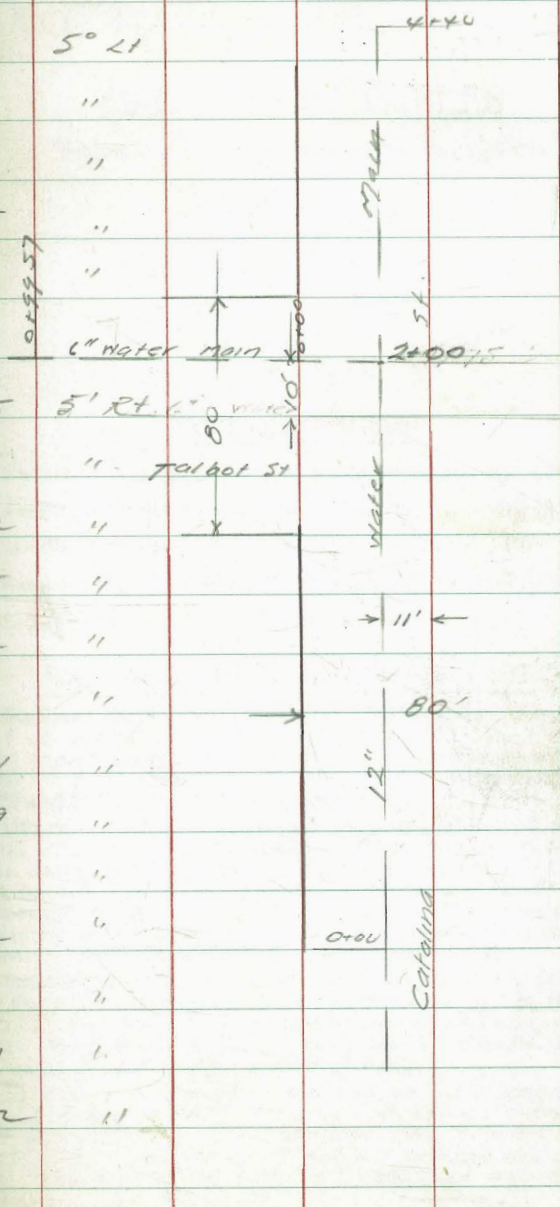 4+40
5° Lt
"
"
Main
"
0+99.57
"
St.
0+00
6" Water main
2+00
10'
5' Rt. 6" water
80
"
Talbot St
Water
"
"
11'
"
"
80'
12"
"
"
"
"
0+00
Catalina
"
"
"